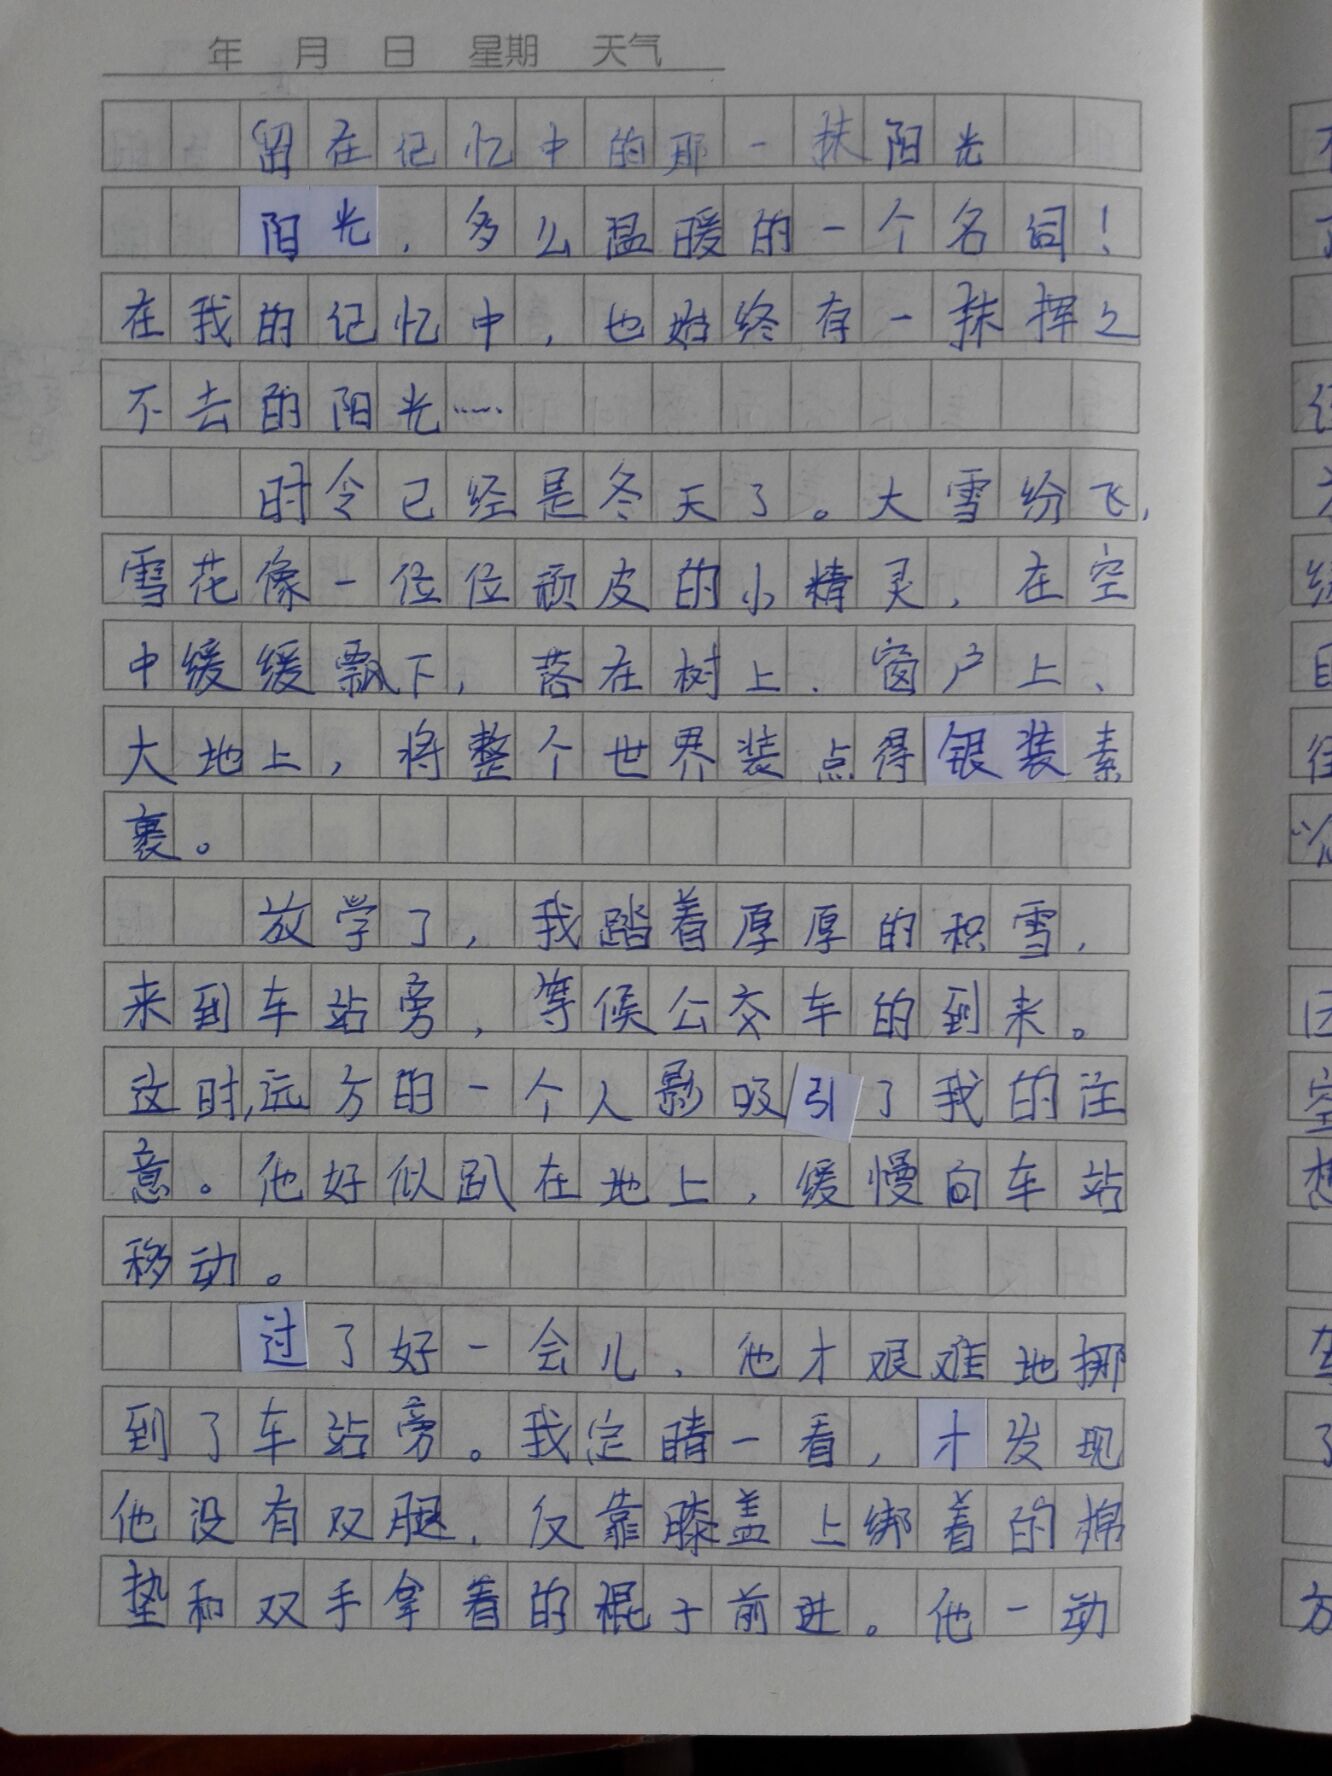 年 月 日 星期 天气
留在记忆中的那一抹阳光
阳光，多么温暖的一个名词！
在我的记忆中，也始终有一抹挥之
不去的阳光……
时令已经是冬天了。大雪纷飞，
雪花像一位位顽皮的小精灵，在空
中缓缓飘下，落在树上、窗户上、
大地上，将整个世界装点得银装素
裹。
放学了，我踏着厚厚的积雪，
来到车站旁，等候公交车的到来。
这时，远方的一个人影吸引了我的注
意。他好似趴在地上，缓慢向车站
移动。
过了好一会儿，他才艰难地挪
到了车站旁。我定睛一看，才发现
他没有双腿，仅靠膝盖上绑着的棉
垫和双手拿着的棍子前进。他一动